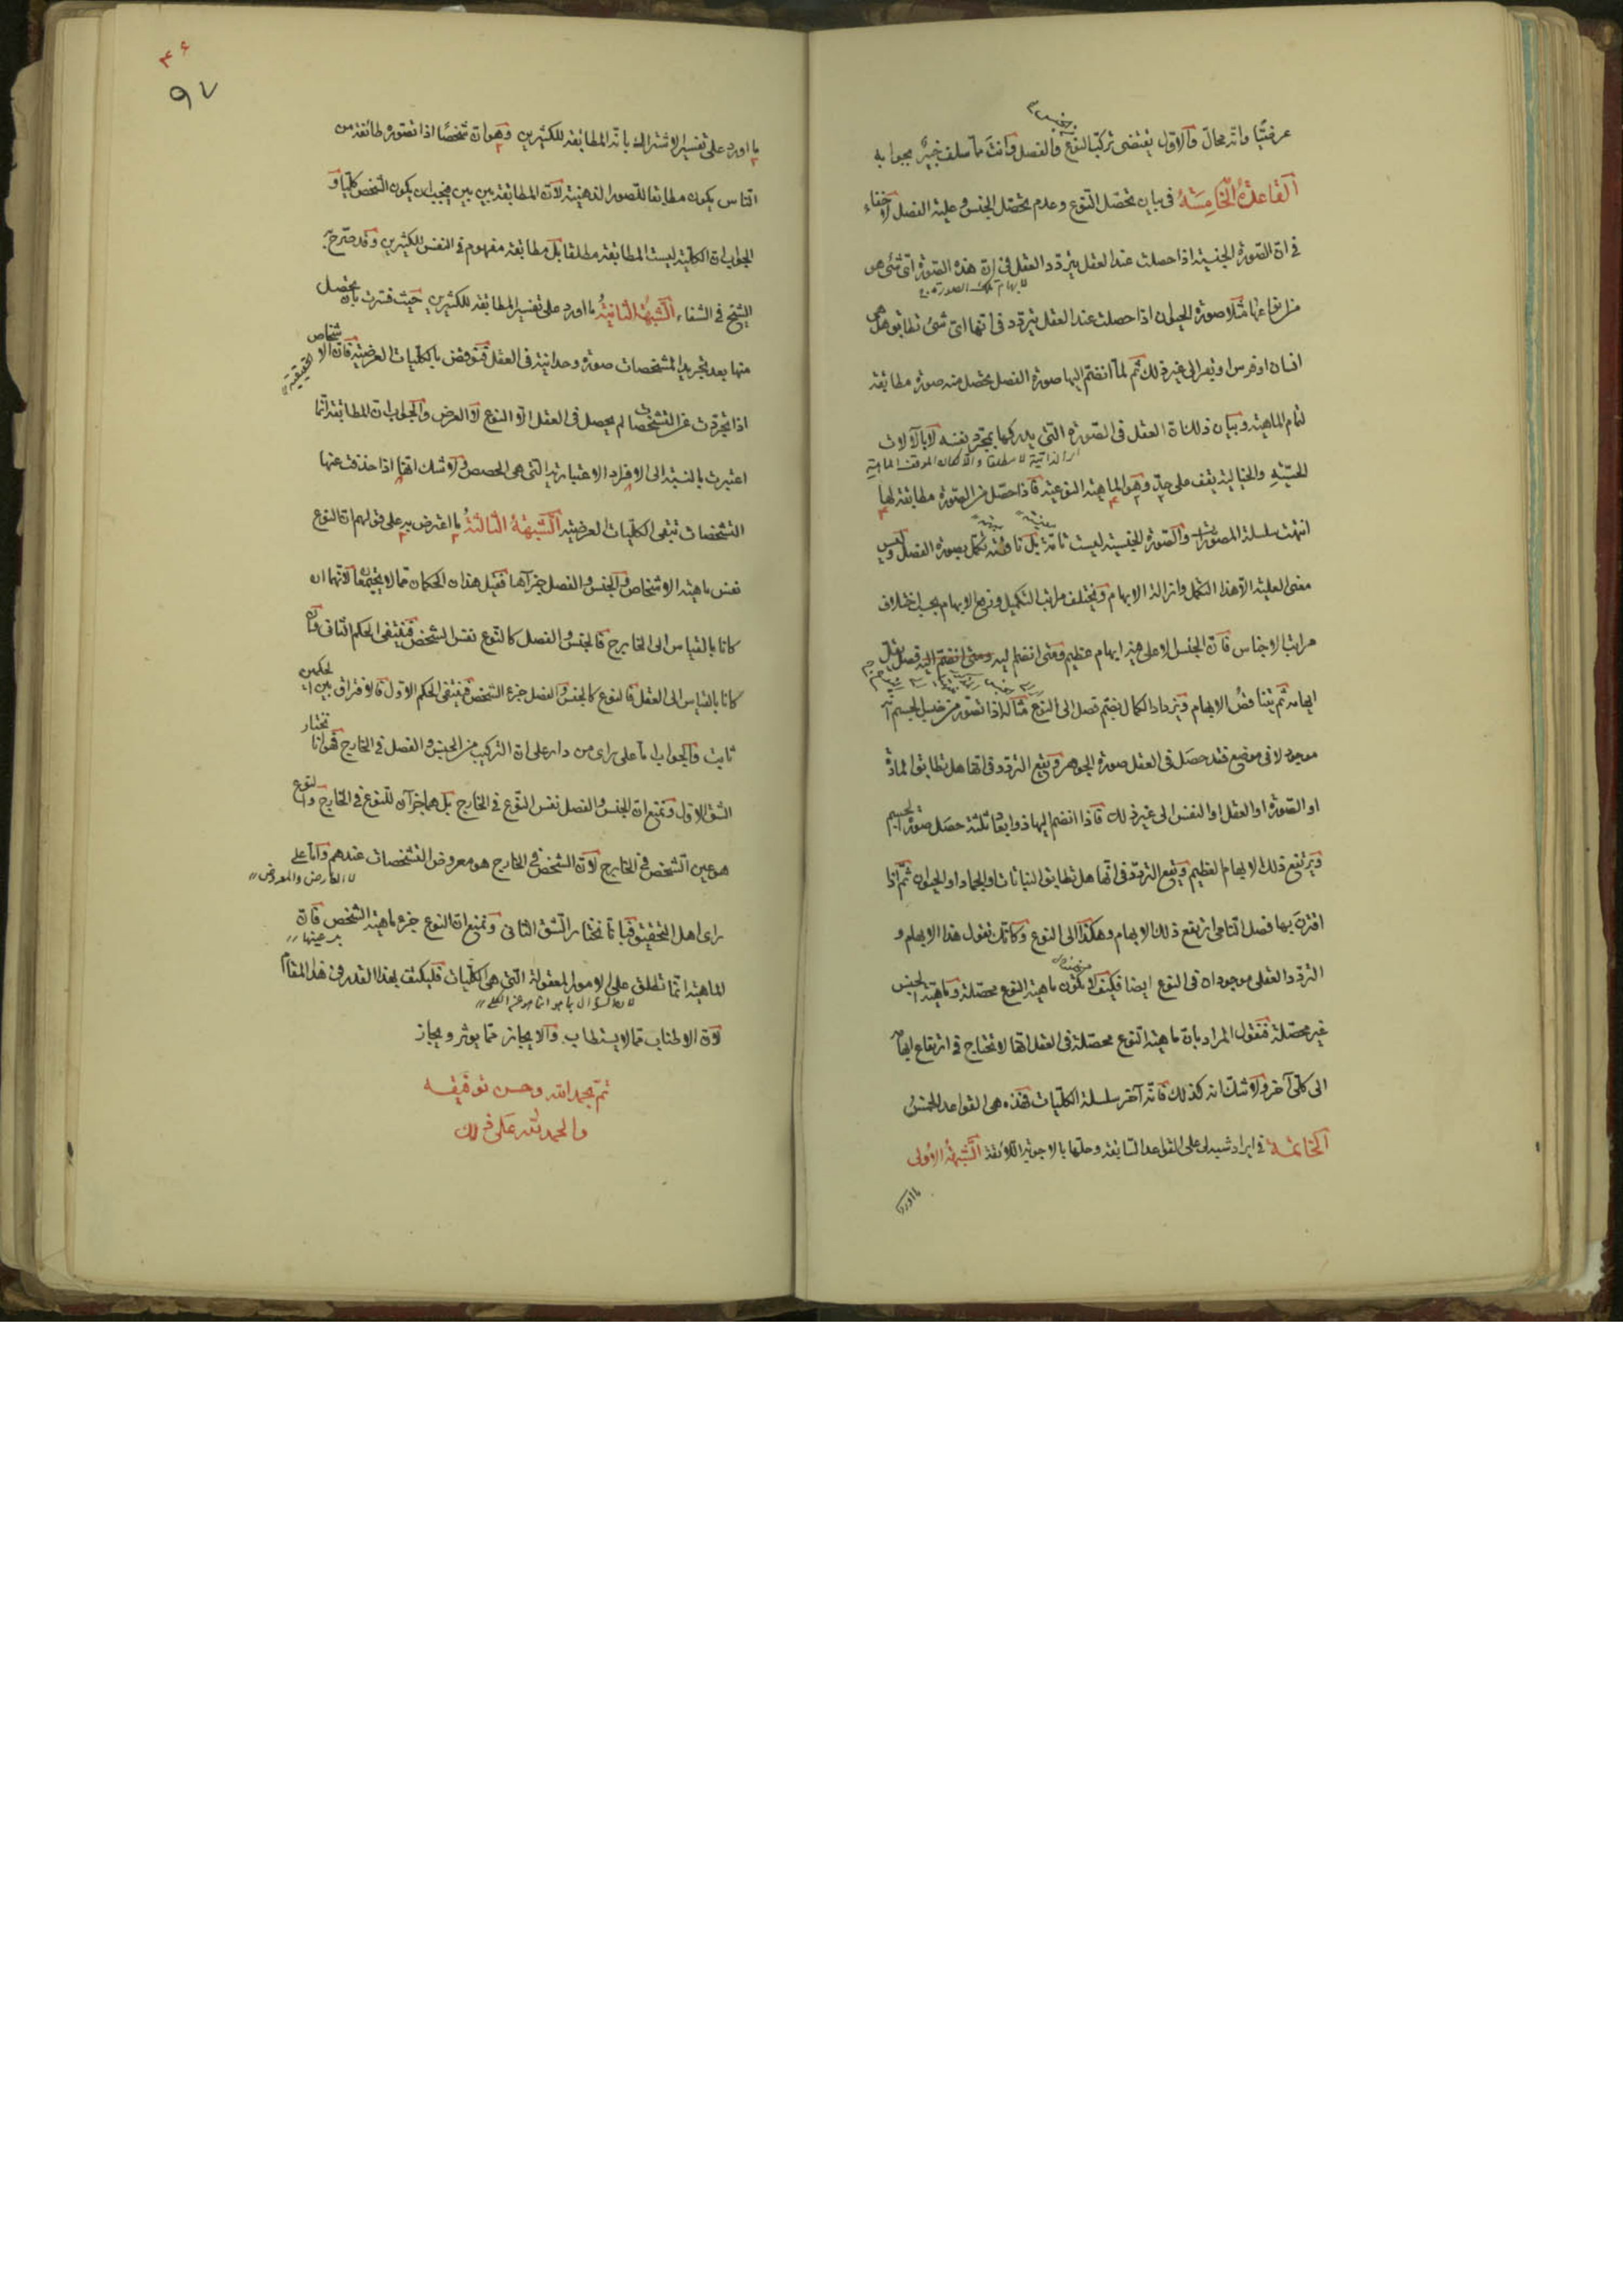 عرضيًّا وانه محال والاول يقتضى تركب النوع والفصل وانت مما سلف خبير بجوابه
القاعدة الخامسة فى بيان تحصّل النوع وعدم تحصّل الجنس وعلية الفصل لا خفاء
فى ان الصورة الجنسية اذا حصلت عند العقل يتردد العقل فى ان هذه الصورة اى شئ هو
لابهام تلك الصورة
من انواعها مثلا صورة الحيوان اذا حصلت عند العقل يتردد فى انها اى شئ تطابق هل هى
انسان او فرس او بقر الى غير ذلك ثم لما انضم اليها صورة الفصل يحصل منه صورة مطابقة
لتمام الماهية وبيان ذلك ان العقل فى الصورة التى يدركها بمجرد نفسه لا بالآلات
الحسية والخيالية يقف على حدّ وهو الماهية النوعية فاذا حصّل من الصورة مطابقة لها
انتهت سلسلة التصورات والصورة الجنسية ليست تامة بل ناقصة تكمل بصورة الفصل وليس
معنى العلية الا هذا التكمل وازالة الابهام ويختلف مراتب التكميل ورفع الابهام بحسب اختلاف
مراتب الاجناس فان الجنس الاعلى فيه ابهام عظيم ومتى انضم اليه فصل يقل
ابهامه ثم يتناقص الابهام ويزداد الكمال بضم فصل الى النوع مثاله اذا تصور من قبل الجسم انه
موجود لا فى موضوع فقد حصل فى العقل صورة الجوهر ويقع التردد فى انها هل تطابق المادة
او الصورة او العقل او النفس الى غير ذلك فاذا انضم اليها ذو ابعاد ثلثة حصل صورة الجسم
ويرتفع ذلك الابهام العظيم ويقع التردد فى انها هل تطابق النباتات او الجماد او الحيوان ثم اذا
اقترن بها فصل النامى ارتفع ذلك الابهام وهكذا الى النوع وكانك تقول هذا الابهام و
التردد العقلى موجودان فى النوع ايضا فكيف يكون ماهية النوع محصلة وماهية الجنس
غير محصلة فنقول المراد بان ماهية النوع محصلة فى العقل انها لا تحتاج فى ارتفاع ابهام
الى كلى آخر ولا شك انه كذلك فانه آخر سلسلة الكليات فهذه هى القواعد الخمس
الخاتمة فى ايراد شبه على القواعد السابقة وحلها بالاجوبة اللائقة الشبهة الاولى
ما اورد
۹۷
ما اورد على تفسير الاشتراك بانه المطابقة للكثيرين وهو ان شخصًا اذا تصوره طائفة من
الناس يكون مطابقا للصور الذهنية لان المطابقة بين بين فيجب ان يكون الشخص كليا و
الجواب ان الكلية ليست المطابقة مطلقا بل مطابقة مفهوم فى النفس للكثيرين وقد صرح به
الشيخ فى الشفاء الشبهة الثانية ما اورد على تفسير المطابقة للكثيرين حيث فسرت بان يحصل
منها بعد تجريد المشخصات صورة وحدانية فى العقل فنوقض بالكليات العرضية فان الاشخاص الحقيقية
اذا تجردت عن التشخصات لم يحصل فى العقل الا النوع لا العرض والجواب ان المطابقة انما
اعتبرت بالنسبة الى الافراد الاعتبارية التى هى الحصص ولا شك انها اذا حذفت عنها
التشخصات تبقى الكليات العرضية الشبهة الثالثة ما اعترض به على قولهم ان النوع
نفس ماهية الاشخاص والجنس والفصل جزآها فقيل هذان الحكمان مما لا يجتمعان لانهما ان
كانا بالقياس الى الخارج فالجنس والفصل كالنوع نفس الشخص فينتفى الحكم الثانى وان
كانا بالقياس الى العقل فالنوع كالجنس والفصل جزء الشخص فينتفى الحكم الاول فالافتراق بين الحكمين
ثابت والجواب اما على راى من دار على ان التركيب من الجنس والفصل فى الخارج فهو انا نختار
الشق الاول ونمنع ان الجنس والفصل نفس النوع فى الخارج بل هما جزآن للنوع فى الخارج والنوع
هو عين الشخص فى الخارج لان الشخص فى الخارج هو معروض التشخصات عندهم واما على
لا العارض والمعروض
راى اهل التحقيق فبانا نختار الشق الثانى ونمنع ان النوع جزء ماهية الشخص فان
بل عينها
الماهية انما تطلق على الامور المعقولة التى هى الكليات فليكتف بهذا القدر فى هذا المقام
لان السؤال بما هو انما هو عن الكلى
لان الاطناب مما لا يستطاب والايجاز مما يوثر ويجاز
تم بحمد الله وحسن توفيقه
والحمد لله على ذلك